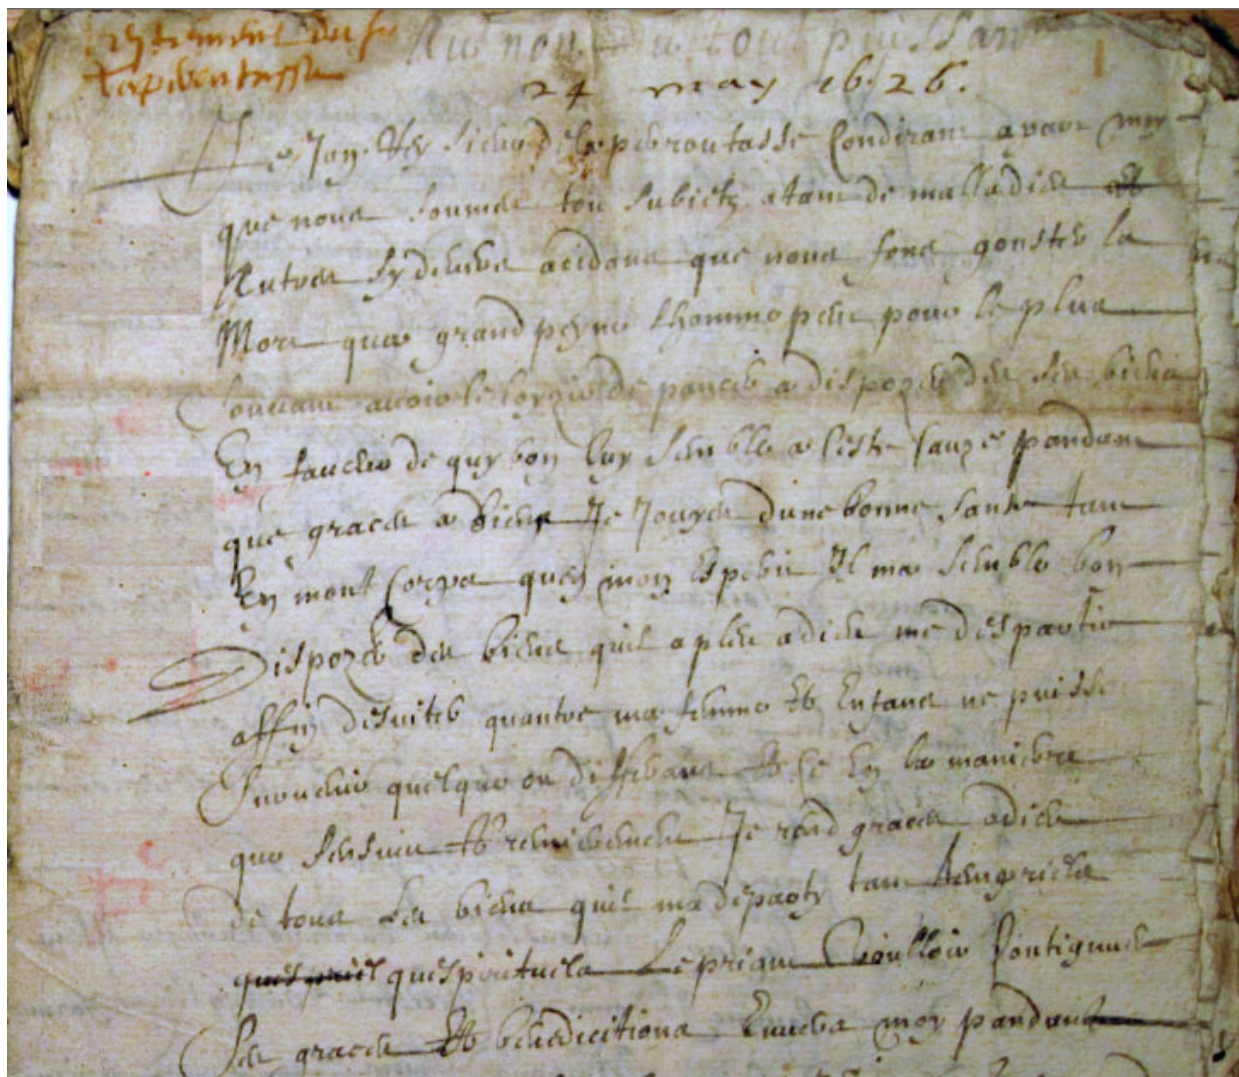 testement du sr
Au nom du tout puissan
24 may 1626.
Je sieur de la peiroutasse Considirant avant moy
que nous soummes tou subiets a tant de malladies et
Autres sy divers acidans que nous fons gouster la
Mort que a grand peyne lhomme peut pour le plus
souvant avoir le loyzir de pancer a dispozer des ses biens
En faveur de quy bon luy semble a ceste cauze pandant
que graces a dieu Je Jouyes dune bonne sante tant
En mont Corps quen mon Esperit Il ma semble bon
Dispozer des biens quil a pleu a dieu me despartir
affin desviter quantre ma femme et Enfans ne puisse
survenir quelque ou differans et ce En la maniere
que sensuit et premierement Je rend graces a dieu
de tous les biens quil ma departy tant temporiels
que spirituels Le priant Voulloir Contignuer
ses graces et benedicitions Envers moy pandant